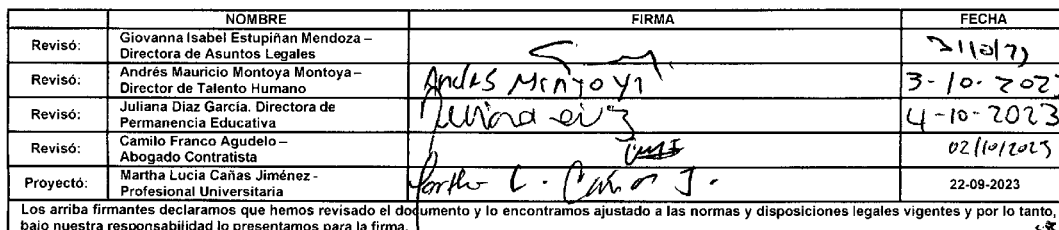 NOMBRE FIRMA FECHA
Revisó: Giovanna Isabel Estupiñan Mendoza –
Directora de Asuntos Legales
Revisó: Andrés Mauricio Montoya Montoya –
Director de Talento Humano Andrés Montoya 3-10-2023
Revisó: Juliana Díaz García. Directora de
Permanencia Educativa 4-10-2023
Revisó: Camilo Franco Agudelo –
Abogado Contratista 02/10/2023
Proyectó: Martha Lucía Cañas Jiménez -
Profesional Universitaria Martha L. Cañas J. 22-09-2023
Los arriba firmantes declaramos que hemos revisado el documento y lo encontramos ajustado a las normas y disposiciones legales vigentes y por lo tanto,
bajo nuestra responsabilidad lo presentamos para la firma.